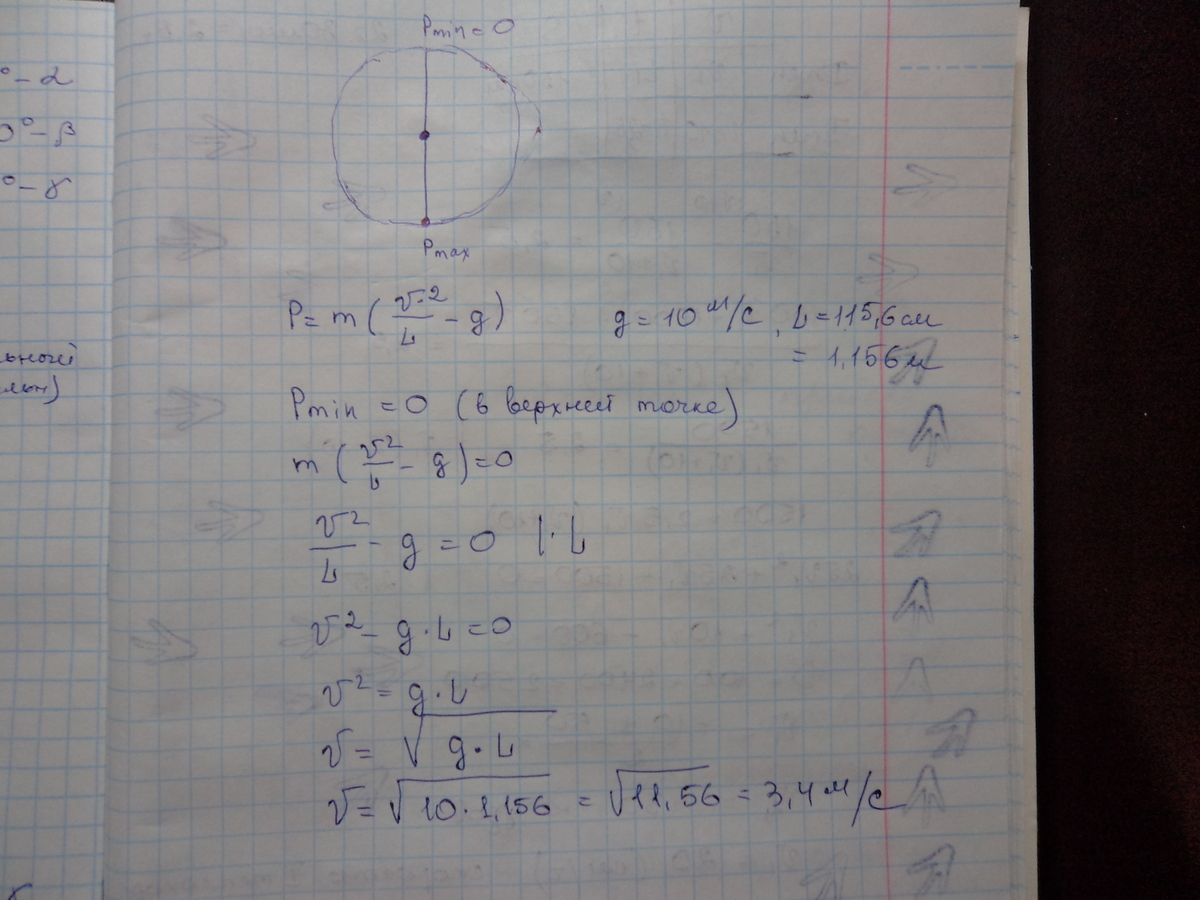 °-α
0°-β
°-γ
ьной
льн)
Pmin = 0
Pmax
P = m ( v² / L - g ) g = 10 м/с, L = 115,6 см
= 1,156 м
Pmin = 0 (в верхней точке)
m ( v² / L - g ) = 0
v² / L - g = 0 |·L
v² - g·L = 0
v² = g·L
v = √g·L
v = √10·1,156 = √11,56 = 3,4 м/с